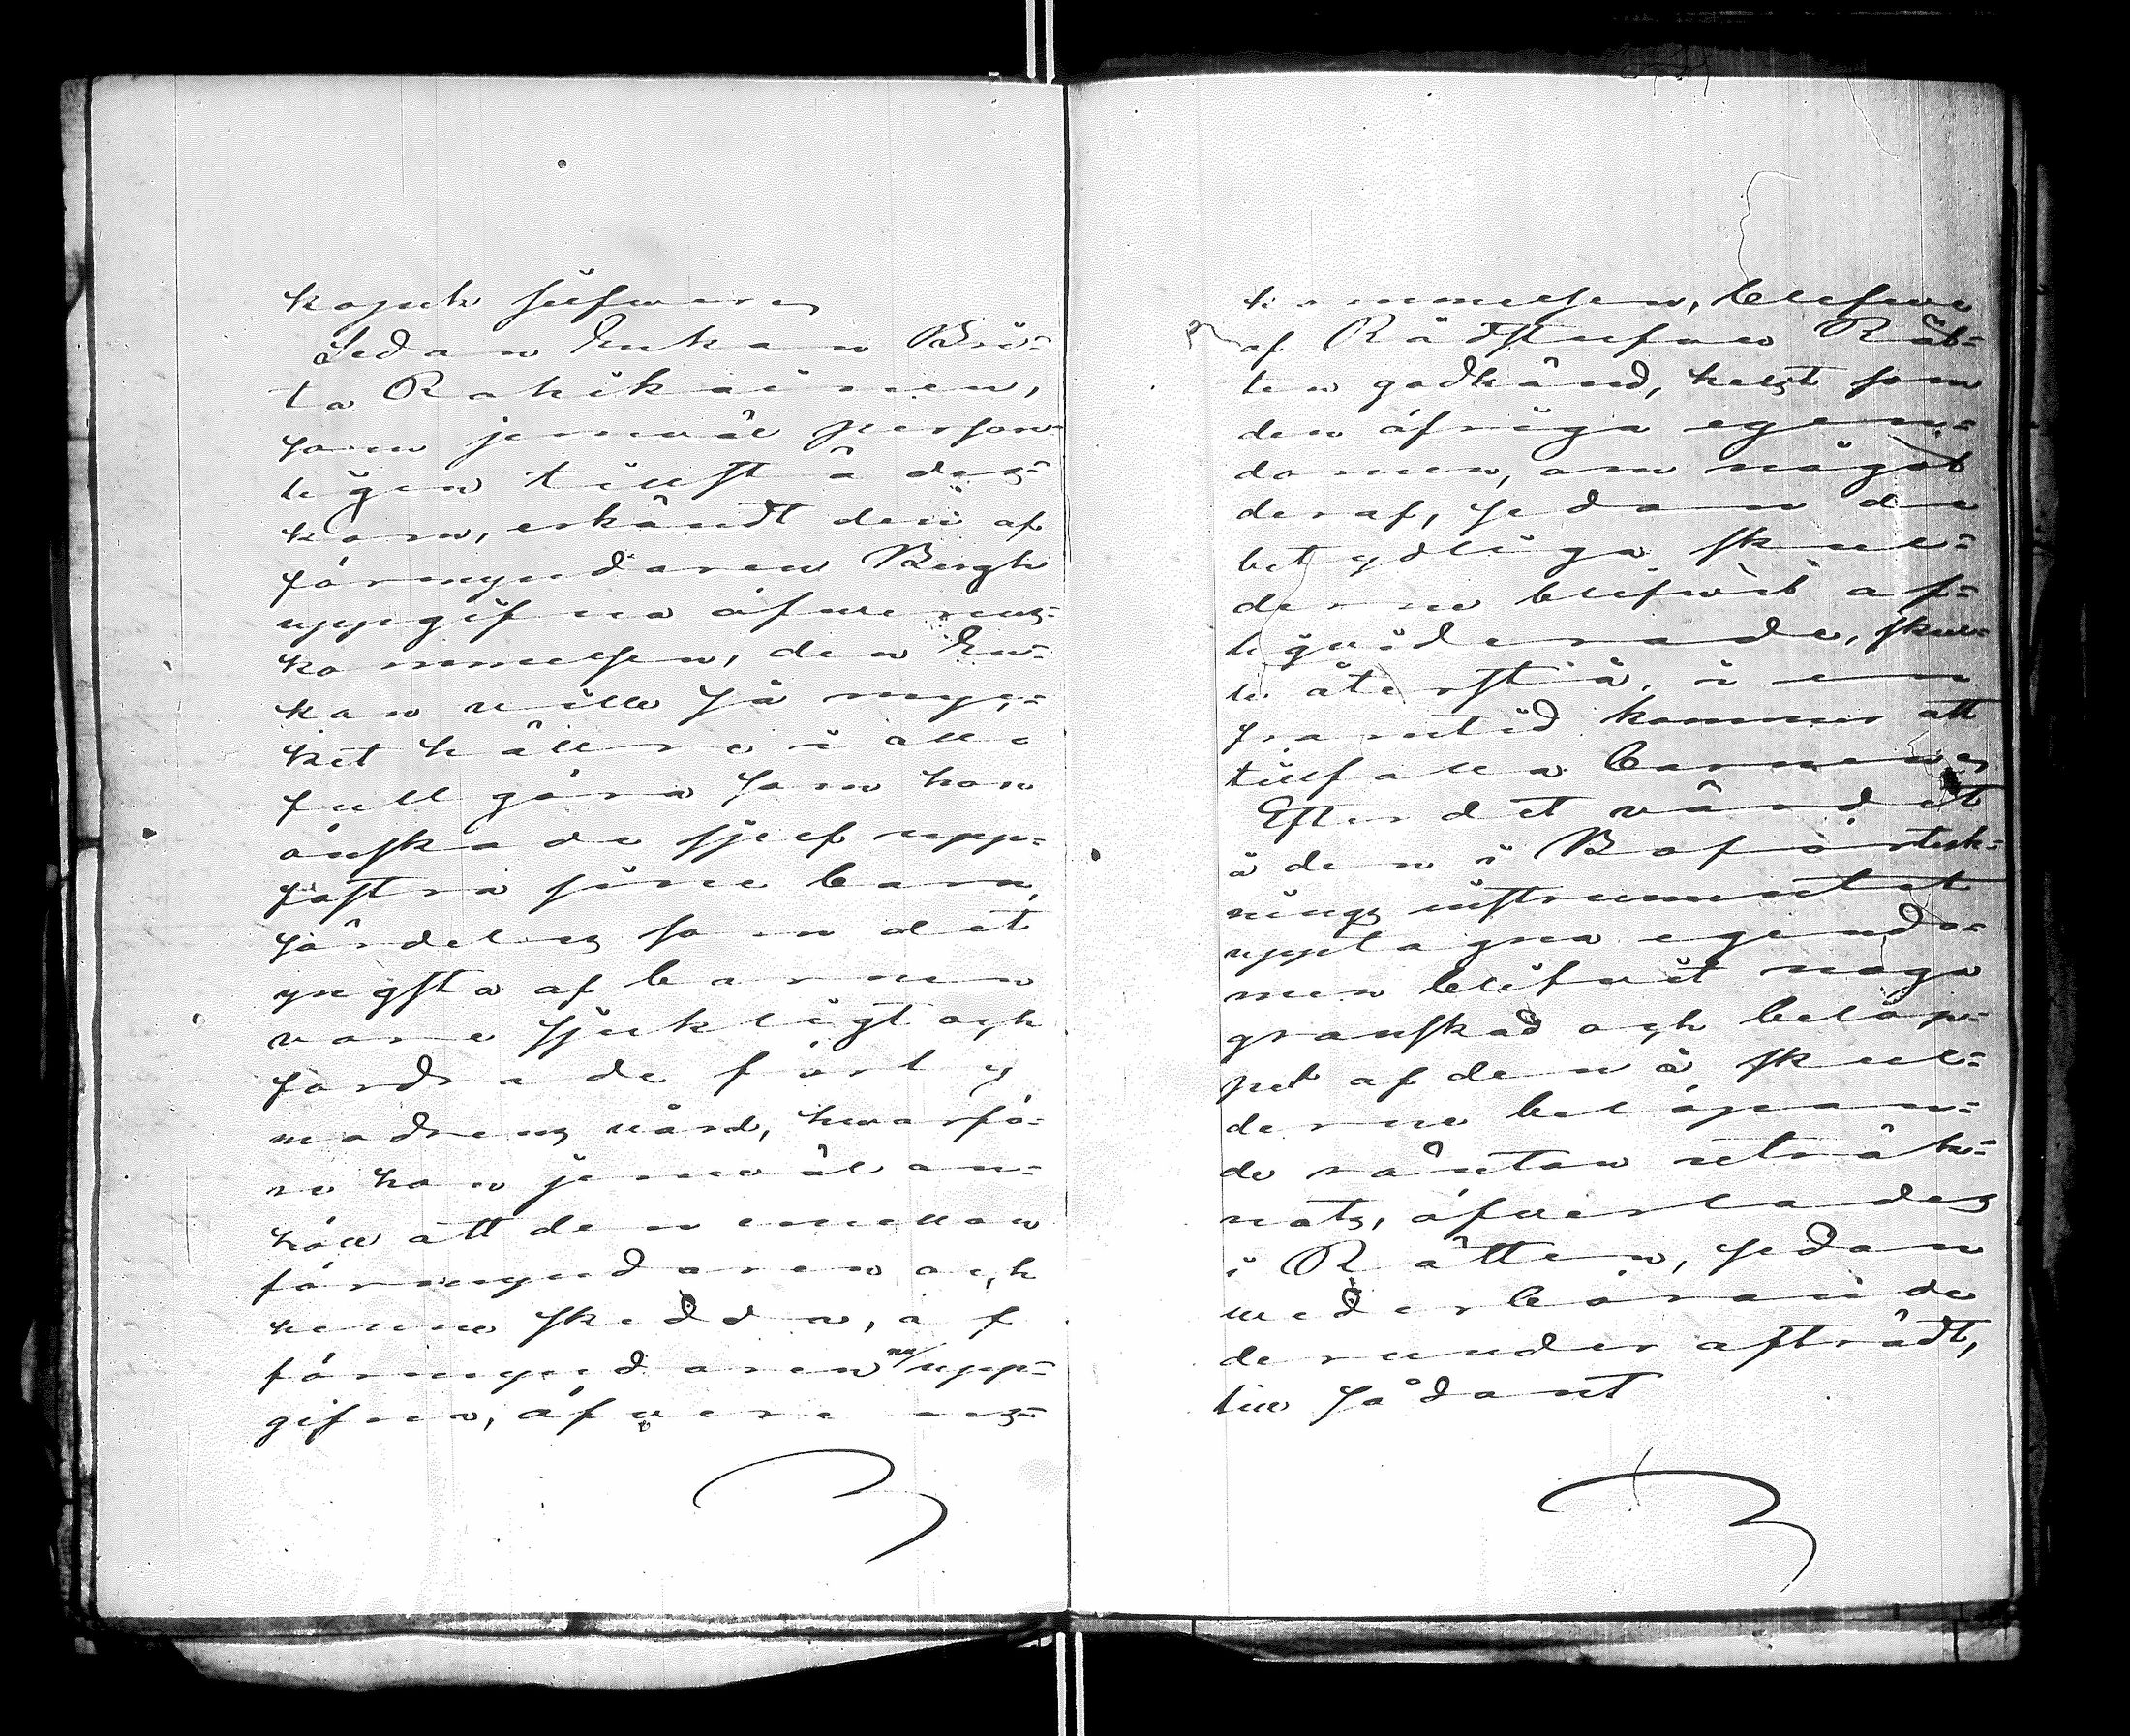 kopek silfver.
Sedan Enkan Bri¬
ta Rahikainen,
som jemväl person¬
ligen tillstädes¬
kom, erkändt den af
förmyndaren Bergh
uppgifna öfverens¬
kommelsen, den En¬
kan ville så myc¬
ket hällre i allo
fullgöra som hon
önskade sjelf upp¬
fostra sine barn,
särdeles som det
yngsta af barnen
vore sjukligt och
fordrade
modrens vård, hvarfö¬
re hon jemväl an¬
höll att den emellan
förmyndaren och
henne skedda, af
förmyndaren nu/ upp¬
gifna, öfverens¬
kommelsen, blefve
af Rådstufvu Rät¬
ten godkänd, helst som
den öfriga egen¬
domen, om något
deraf, sedan de
betydliga skul¬
derne blifvit af¬
liqviderade, skul¬
le återstå, i en
framtid kommer att
tillfalla barnen.
Efter det värdet
å den i Boförtek¬
nings instrumentet
upptagna egendo¬
men blifvit noga
granskad och belop¬
pet af den å skul¬
derne belöpan¬
de räntan uträk¬
nats, öfverlades
i Rätten, sedan
vederbörande
derunder afträdt,
till sådant